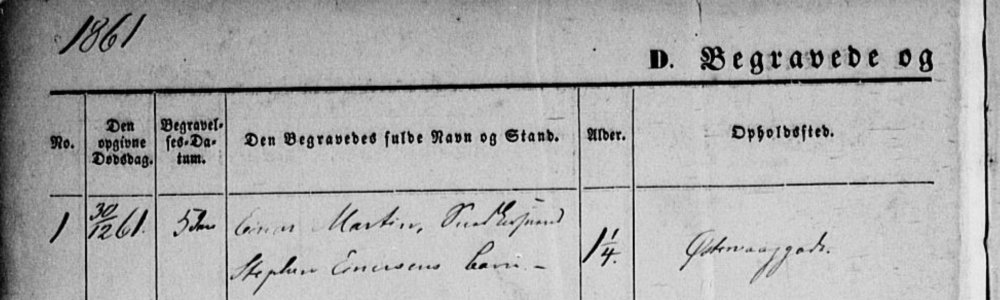 1861
D. Begravede og
No.
Den
opgivne
Dødsdag.
Begravel-
ses-Da-
tum.
Den Begravedes fulde Navn og Stand.
Alder.
Opholdssted.
1
30/12 61.
5
Martin,
Stephen Einersens barn –
1 1/4.